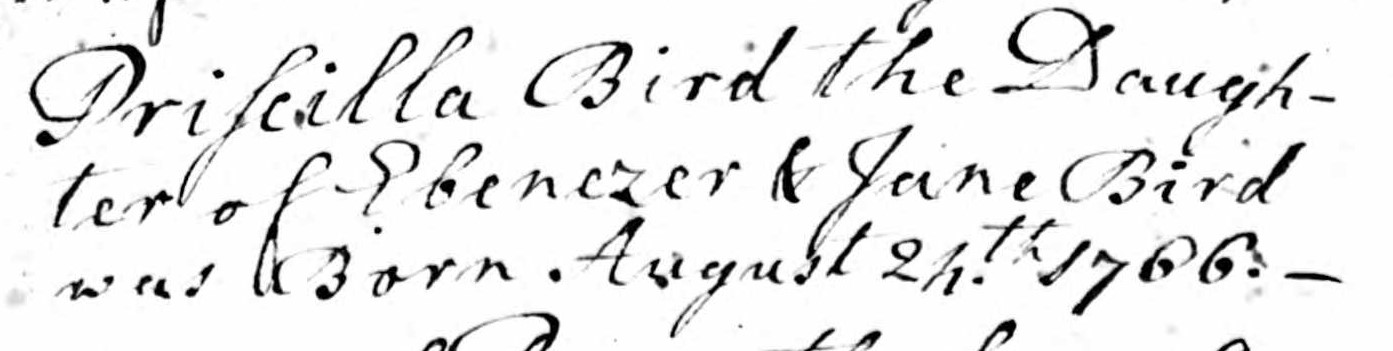 Priſcilla Bird the Daugh-
ter of Ebenezer & Jane Bird
was Born August 24.th 1766. —